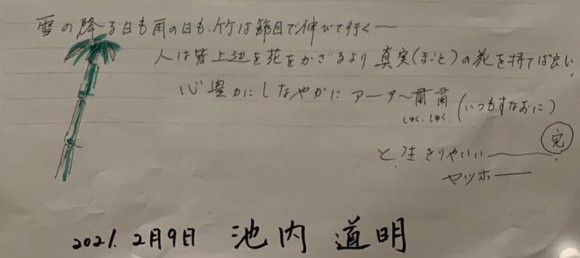 雪の降る日も雨の日も、竹は節目で伸びて行く——
人は皆上辺を花をかざるより真実(まこと)の花を持てば良い、
心豊かにしなやかにアーアー粛粛(いつもすなおに)
しゅく、しゅく
と、生きりやいい—— 完
ヤッホ——
2021. 2月9日 池内 道明